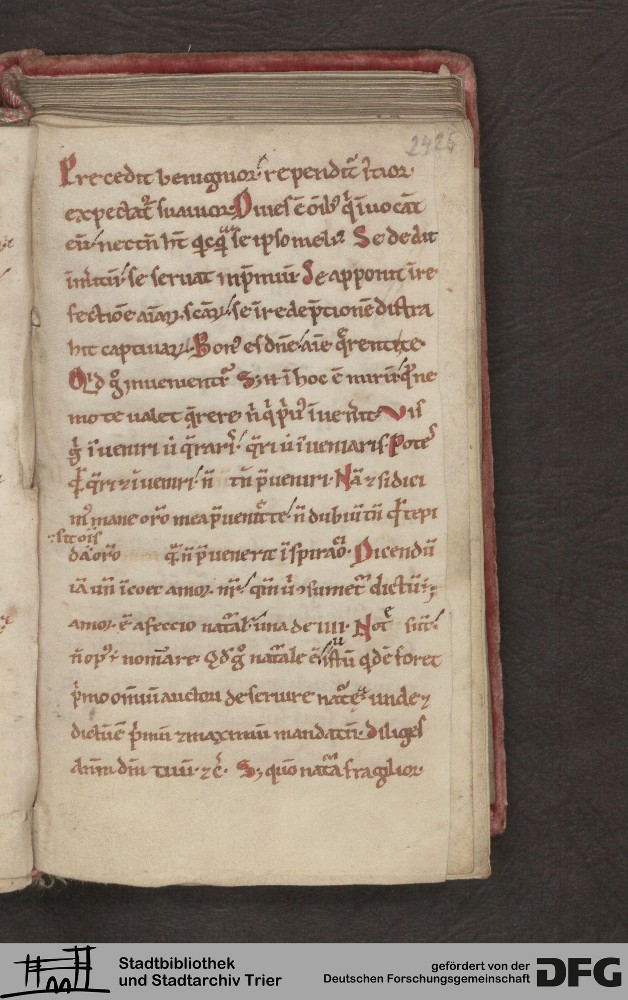 2425
Precedit benignior rependit᷑ iustior
expectat᷑ suauior Diues ē oīb᷒ qͥ īuocāt
eū nec tn̄ ht̄ qͥcqͣ se ipso meli᷒ Se dedit
īmͥitū se seruat in p̄miū Se apponit ī re
fectiōe aīaꝝ scāꝝ se ī redēptione distra
hit captiuaꝝ Bon᷒ es dn̄e aīe q̄renti te
Qͥd gͦ inuenienti Sꝫ ī hoc ē mirū qͥ ne
mo te ualet q̄rere n̄ qͥ pͥ᷒ īuen̄it Vis
gͦ īueniri ut q̄raris q̄ri ut īueniaris Potes
qͥdē q̄ri ⁊ īueniri n̄ tn̄ p̄ueniri Nā ⁊ si dici
m᷒ mane or̄o mea p̄ueniet te n̄ dubiū tn̄ qͥ tepi
sit oīs
da or̄o q̄ n̄ p̄uenerit īspiraō Dicendū
iā un̄ īcoet amor nr̄
amor ē afeccio nat᷑alis una de IIII Note sūt
n̄ op᷒ ē nominare Qd gͦ nat᷑ale ē iustū qͥdē foret
pͥmo omniū auctori deseruire nat᷑e unde ⁊
dictū ē pͥmū ⁊ maximū mandatū Diliges
dn̄m dm̄ tuū ⁊ c̄ Sꝫ qm̄ nat᷑a fragilior
Stadtbibliothek
und Stadtarchiv Trier
gefördert von der
Deutschen Forschungsgemeinschaft
DFG